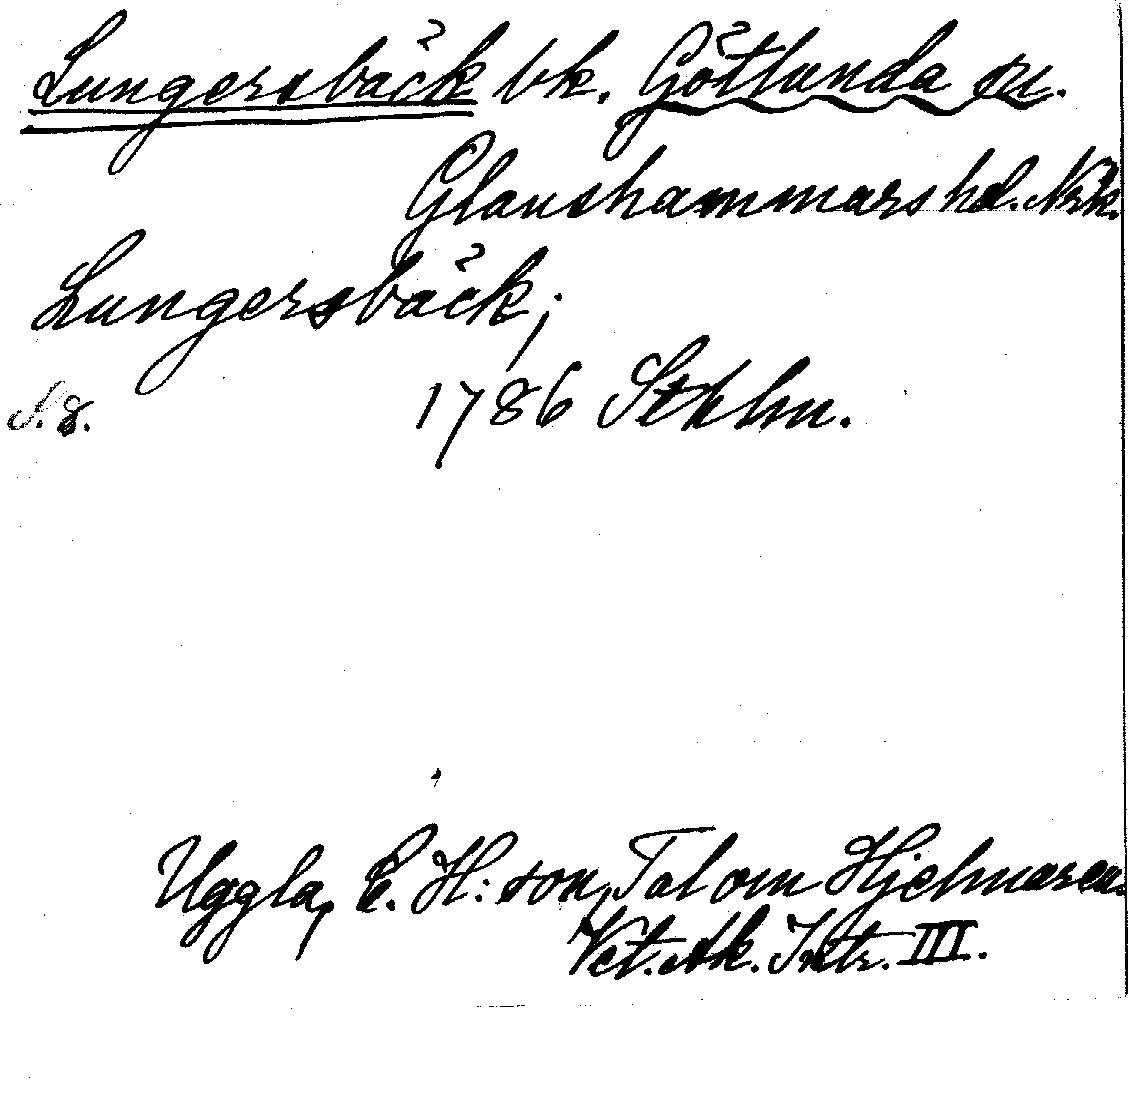 Lungersbäck bk. Götlunda sn.
Glanshammars hd. Nrk.
Lungersbäck;
s. 8. 1786 Sthlm.
Uggla, E. H:son, Tal om Hjelmaren.
Vet. Ak. Intr. III.